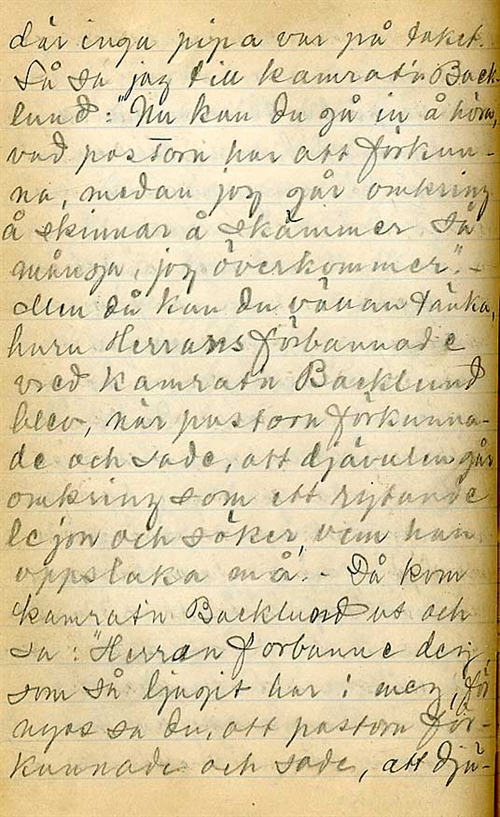 där inga pipa var på taket.
Så sa jag till kamrat'n Back-
lund: "Nu kan du gå in å höra,
vad pastorn har att förkun-
na, medan jag går omkring
å skinnar å skämmer så
många, jag överkommer." -
Men då kan du vännen tänka,
huru Herrans förbannade
vred kamrat'n Backlund
blev, när pastorn förkunna-
de och sade, att djävulen går
omkring som ett rytande
lejon och söker vem han
oppsluka må! - Då kom
kamrat'n Backlund ut och
sa: "Herran forbanne dej,
som så ljugit har i mej, för
nyss sa du, att pastorn för-
kunnade och sade, att djä-